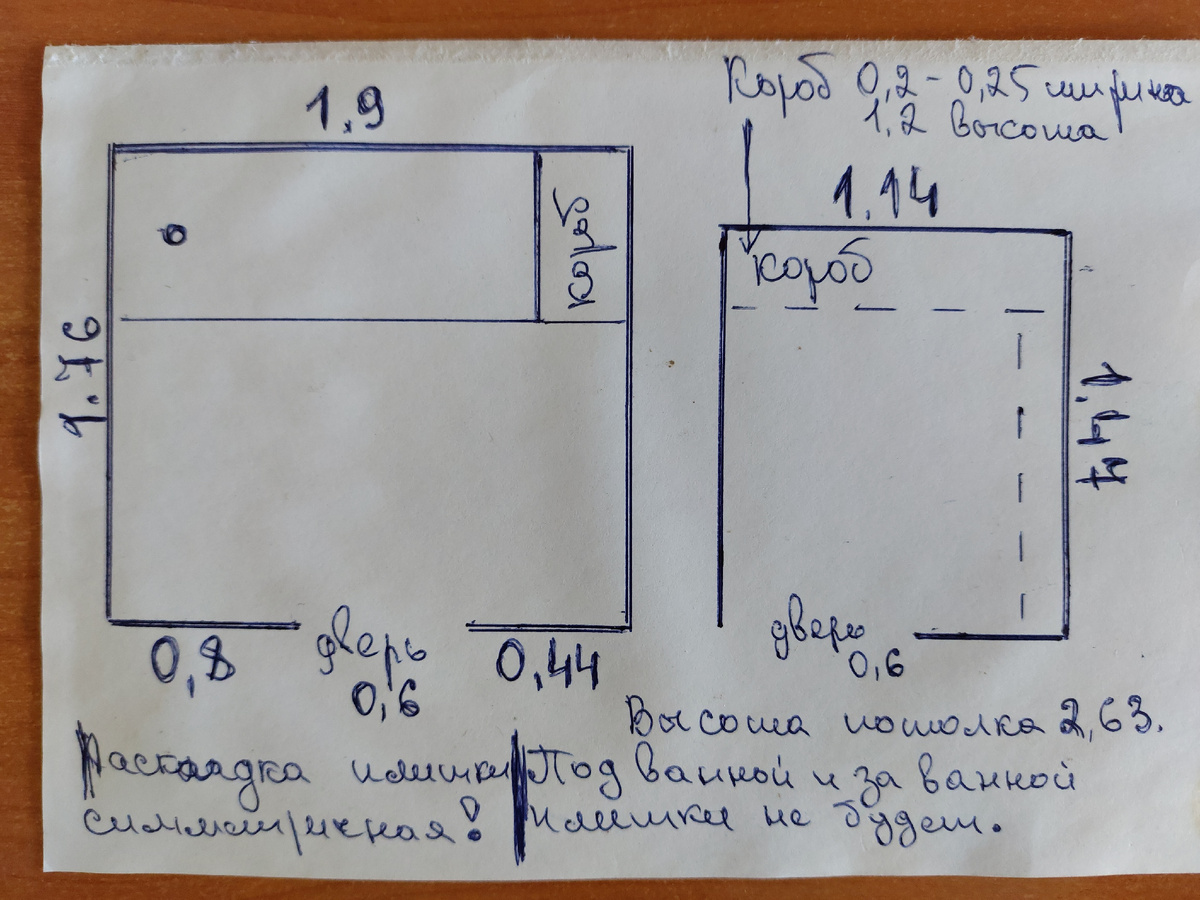 Короб 0,2 - 0,25 ширина
1,2 высота
1.9
Короб
1.76
0,8
дверь
0,6
0,44
1.14
Короб
1,47
дверь
0,6
Высота потолка 2,63.
Раскладка плитки
симметричная!
Под ванной и за ванной
плитки не будет.